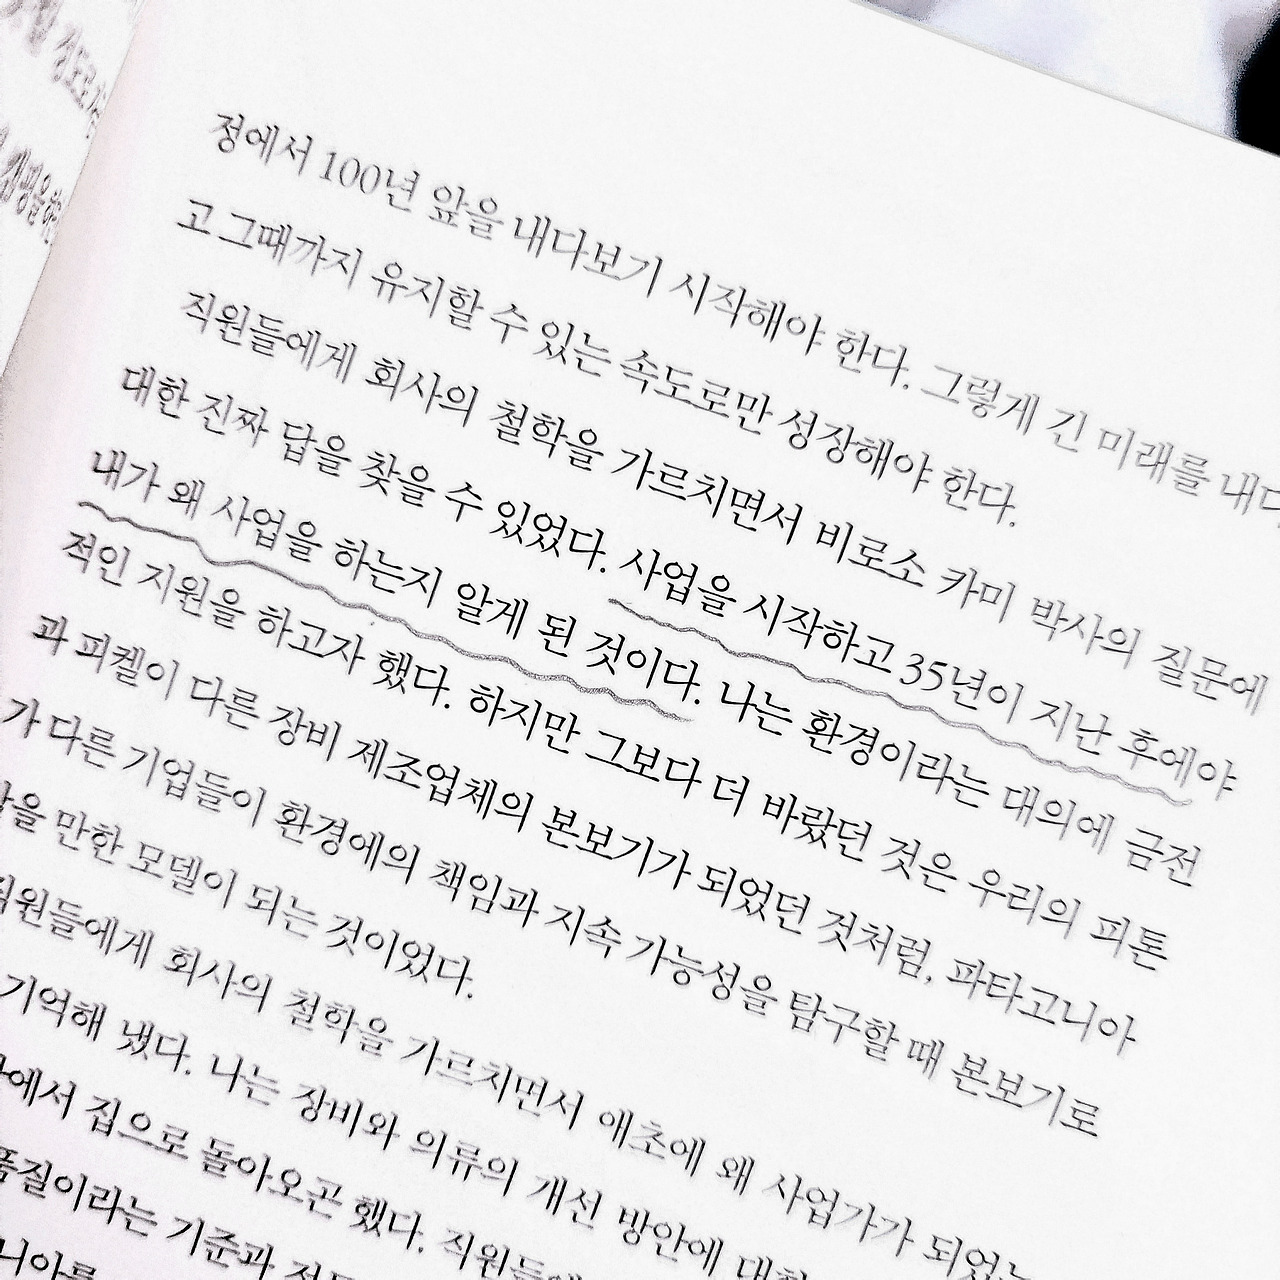 정에서 100년 앞을 내다보기 시작해야 한다. 그렇게 긴 미래를
고 그때까지 유지할 수 있는 속도로만 성장해야 한다.
직원들에게 회사의 철학을 가르치면서 비로소 카미 박사의 질문에
대한 진짜 답을 찾을 수 있었다. 사업을 시작하고 35년이 지난 후에야
내가 왜 사업을 하는지 알게 된 것이다. 나는 환경이라는 대의에 금전
적인 지원을 하고자 했다. 하지만 그보다 더 바랐던 것은 우리의 피톤
과 피켈이 다른 장비 제조업체의 본보기가 되었던 것처럼, 파타고니아
가 다른 기업들이 환경에의 책임과 지속 가능성을 탐구할 때 본보기로
만한 모델이 되는 것이었다.
직원들에게 회사의 철학을 가르치면서 애초에 왜 사업가가
기억해 냈다. 나는 장비와 의류의 개선 방안에
집으로 돌아오곤 했다.
품질이라는 기준과